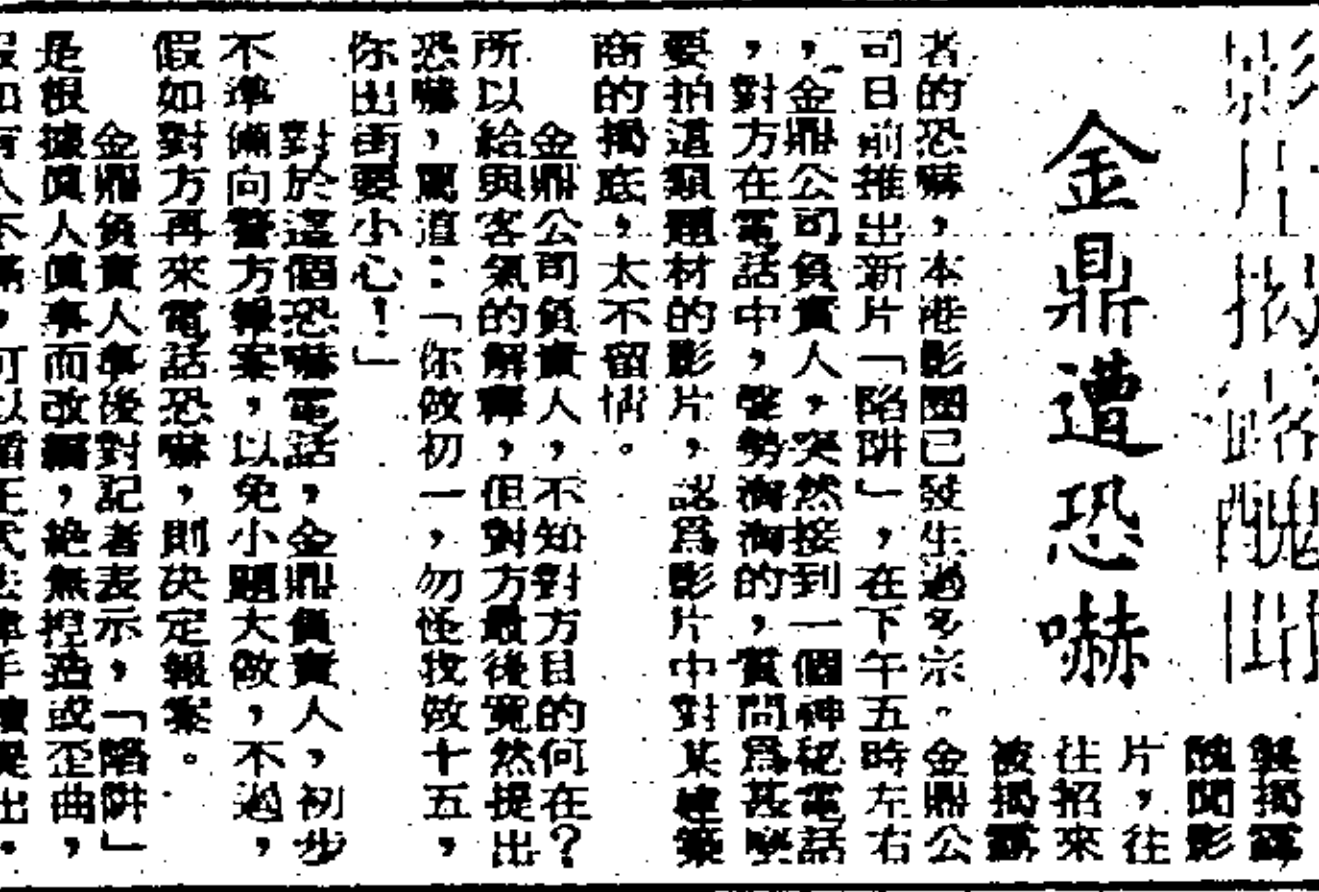 影片揭露醜聞
金鼎遭恐嚇
製揭露
醜聞影
片，往
往招來
被揭露
者的恐嚇，本港影圈已發生過多宗。金鼎公
司日前推出新片「陷阱」，在下午五時左右
，金鼎公司負責人，突然接到一個神秘電話
，對方在電話中，聲勢洶洶的，質問爲甚麼
要拍這類題材的影片，認爲影片中對某建築
商的揭底，太不留情。
金鼎公司負責人，不知對方目的何在？
所以給與客氣的解釋，但對方最後竟然提出
恐嚇，罵道：「你做初一，勿怪我做十五，
你出街要小心！」
對於這個恐嚇電話，金鼎負責人，初步
不準備向警方報案，以免小題大做，不過，
假如對方再來電話恐嚇，則決定報案。
金鼎負責人事後對記者表示，「陷阱」
是根據眞人眞事而改編，絶無揑造或歪曲，
假如有人不滿，可以循正式法律手續提出。